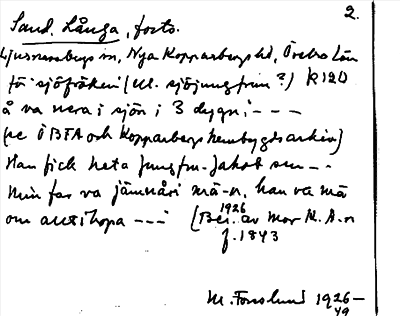 2.
Sand, Långa, forts.
Ljusnarsbergs sn, Nya Kopparbergs hd, Örebro län
för "sjöfröken (el. sjöjungfrun?) K 120
å va nera i sjön i 3 dygn; - - -
(se ÖBFA och Kopparbergs hembygdsarkiv)
Han fick heta Jungfru-Jakob sen - - -
Min far va jämnåri mä-n, han va mä
om allihopa - - - (Ber. 1926 av mor M. A-n
f. 1843
M. Forslund 1926-
49